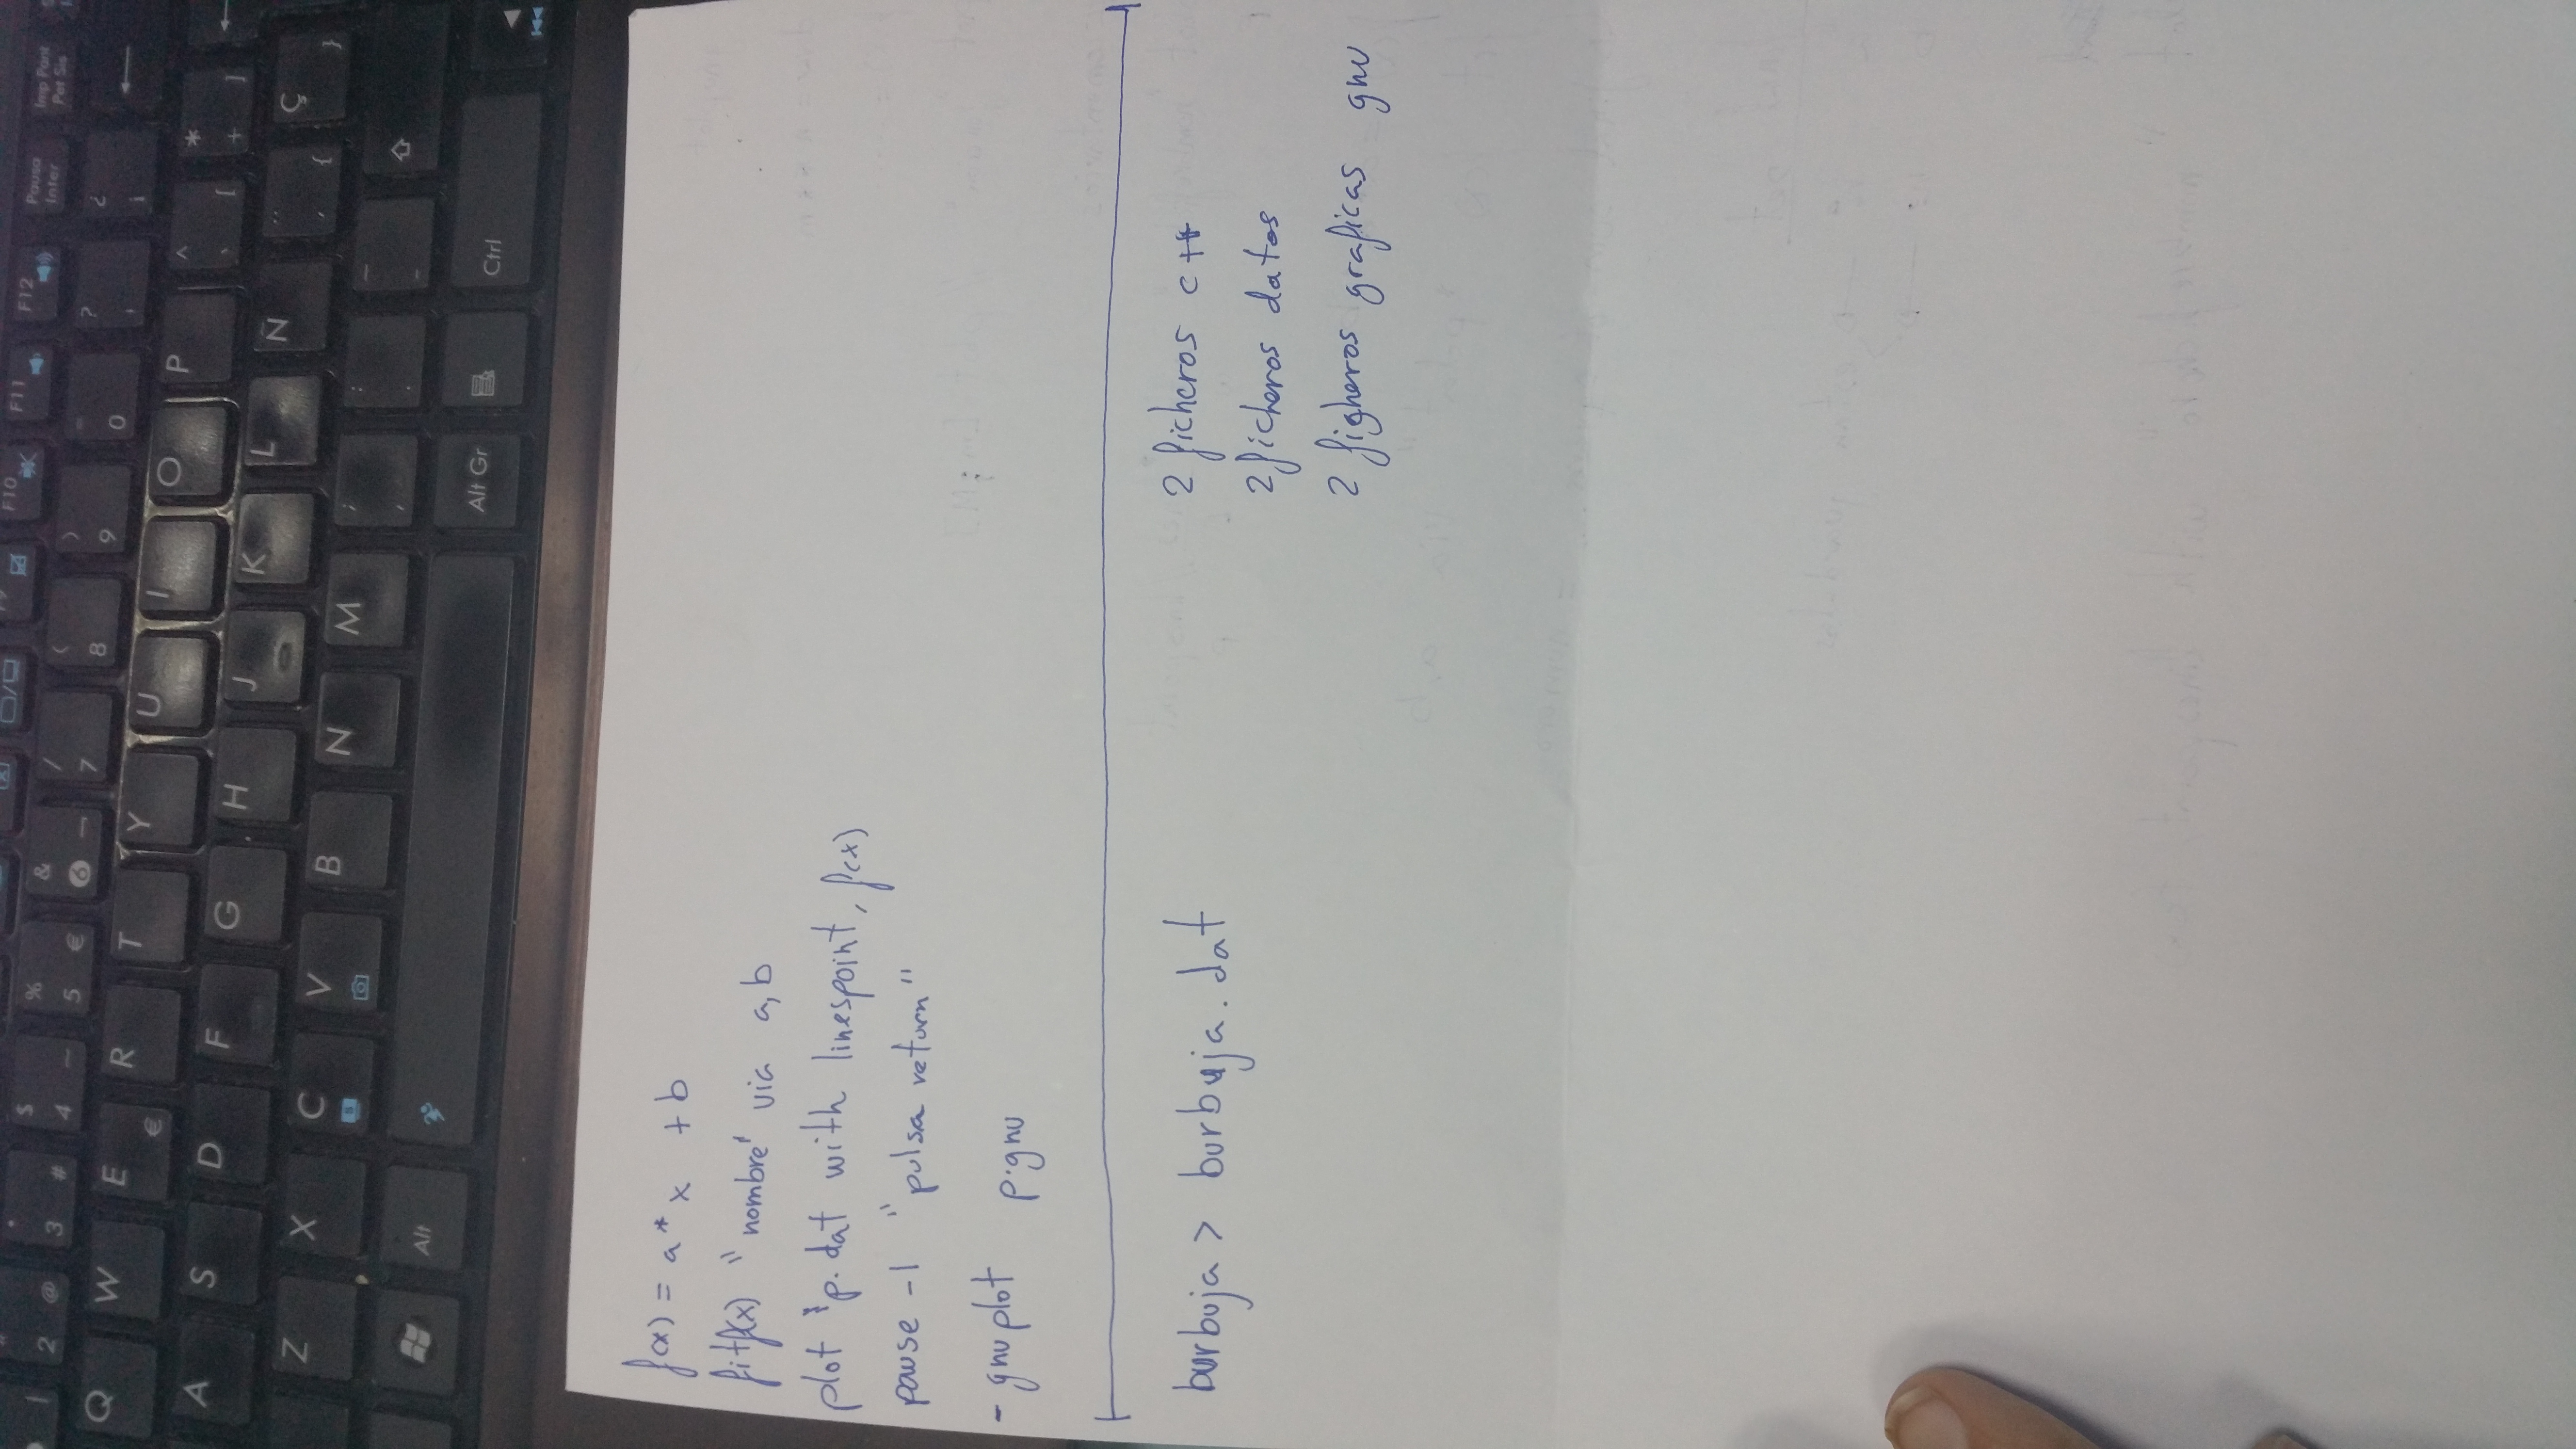 F10 F11 F12 Pausa Inter Imp Pant Pet Sis
2 @ 3 # $ 4 % 5 € & 6 ¬ / 7 ( 8 ) 9 = 0 ? ' ¿ ¡
Q W E € R T Y U I O P ^ ` [ * + ]
A S D F G H J K L Ñ ¨ ´ { Ç }
Z X C V B N M ; , : . _ -
Alt Alt Gr Ctrl
f(x) = a * x + b
fit f(x) "nombre" via a, b
plot "p.dat with linespoint, f(x)
pause -1 "pulsa return"
- gnuplot p.gnu
burbuja > burbuja.dat
2 ficheros c++
2 ficheros datos
2 figheros graficas gnu